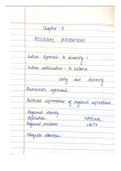 Chapter - 8
REGIONAL ASPIRATIONS
Indian Approach to diversity :
Indian nationalism : to balance
Unity and diversity
Democratic approach
Political expressions of regional aspirations
Regional identity
Aspiration NATIONAL
Regional problems UNITY
Adequate attention